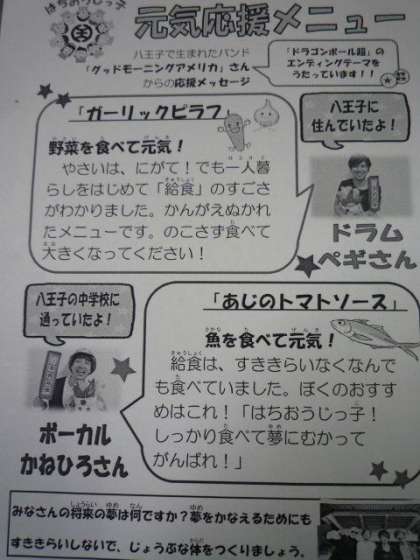 はちおうじっ子
元気応援メニュー
八王子で生まれたバンド
「グッドモーニングアメリカ」さん
からの応援メッセージ
「ドラゴンボール超」の
エンディングテーマを
うたっています!!
「ガーリックピラフ」
野菜を食べて元気!
やさいは、にがて!でも一人暮
らしをはじめて「給食」のすごさ
がわかりました。かんがえぬかれ
たメニューです。のこさず食べて
大きくなってください!
八王子に
住んでいたよ!
ドラム
ペギさん
「あじのトマトソース」
魚を食べて元気!
給食は、すききらいなくなんで
も食べていました。ぼくのおすす
めはこれ!「はちおうじっ子!
しっかり食べて夢にむかって
がんばれ!」
八王子の中学校に
通っていたよ!
ボーカル
かねひろさん
みなさんの将来の夢は何ですか?夢をかなえるためにも
すききらいしないで、じょうぶな体をつくりましょう。